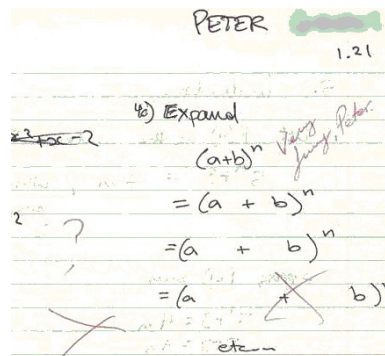 PETER
1.21
4) Expand
x² + x - 2
Very funny, Peter.
(a+b)ⁿ
= (a + b)ⁿ
2
?
=(a + b)ⁿ
=(a + b)
etc...